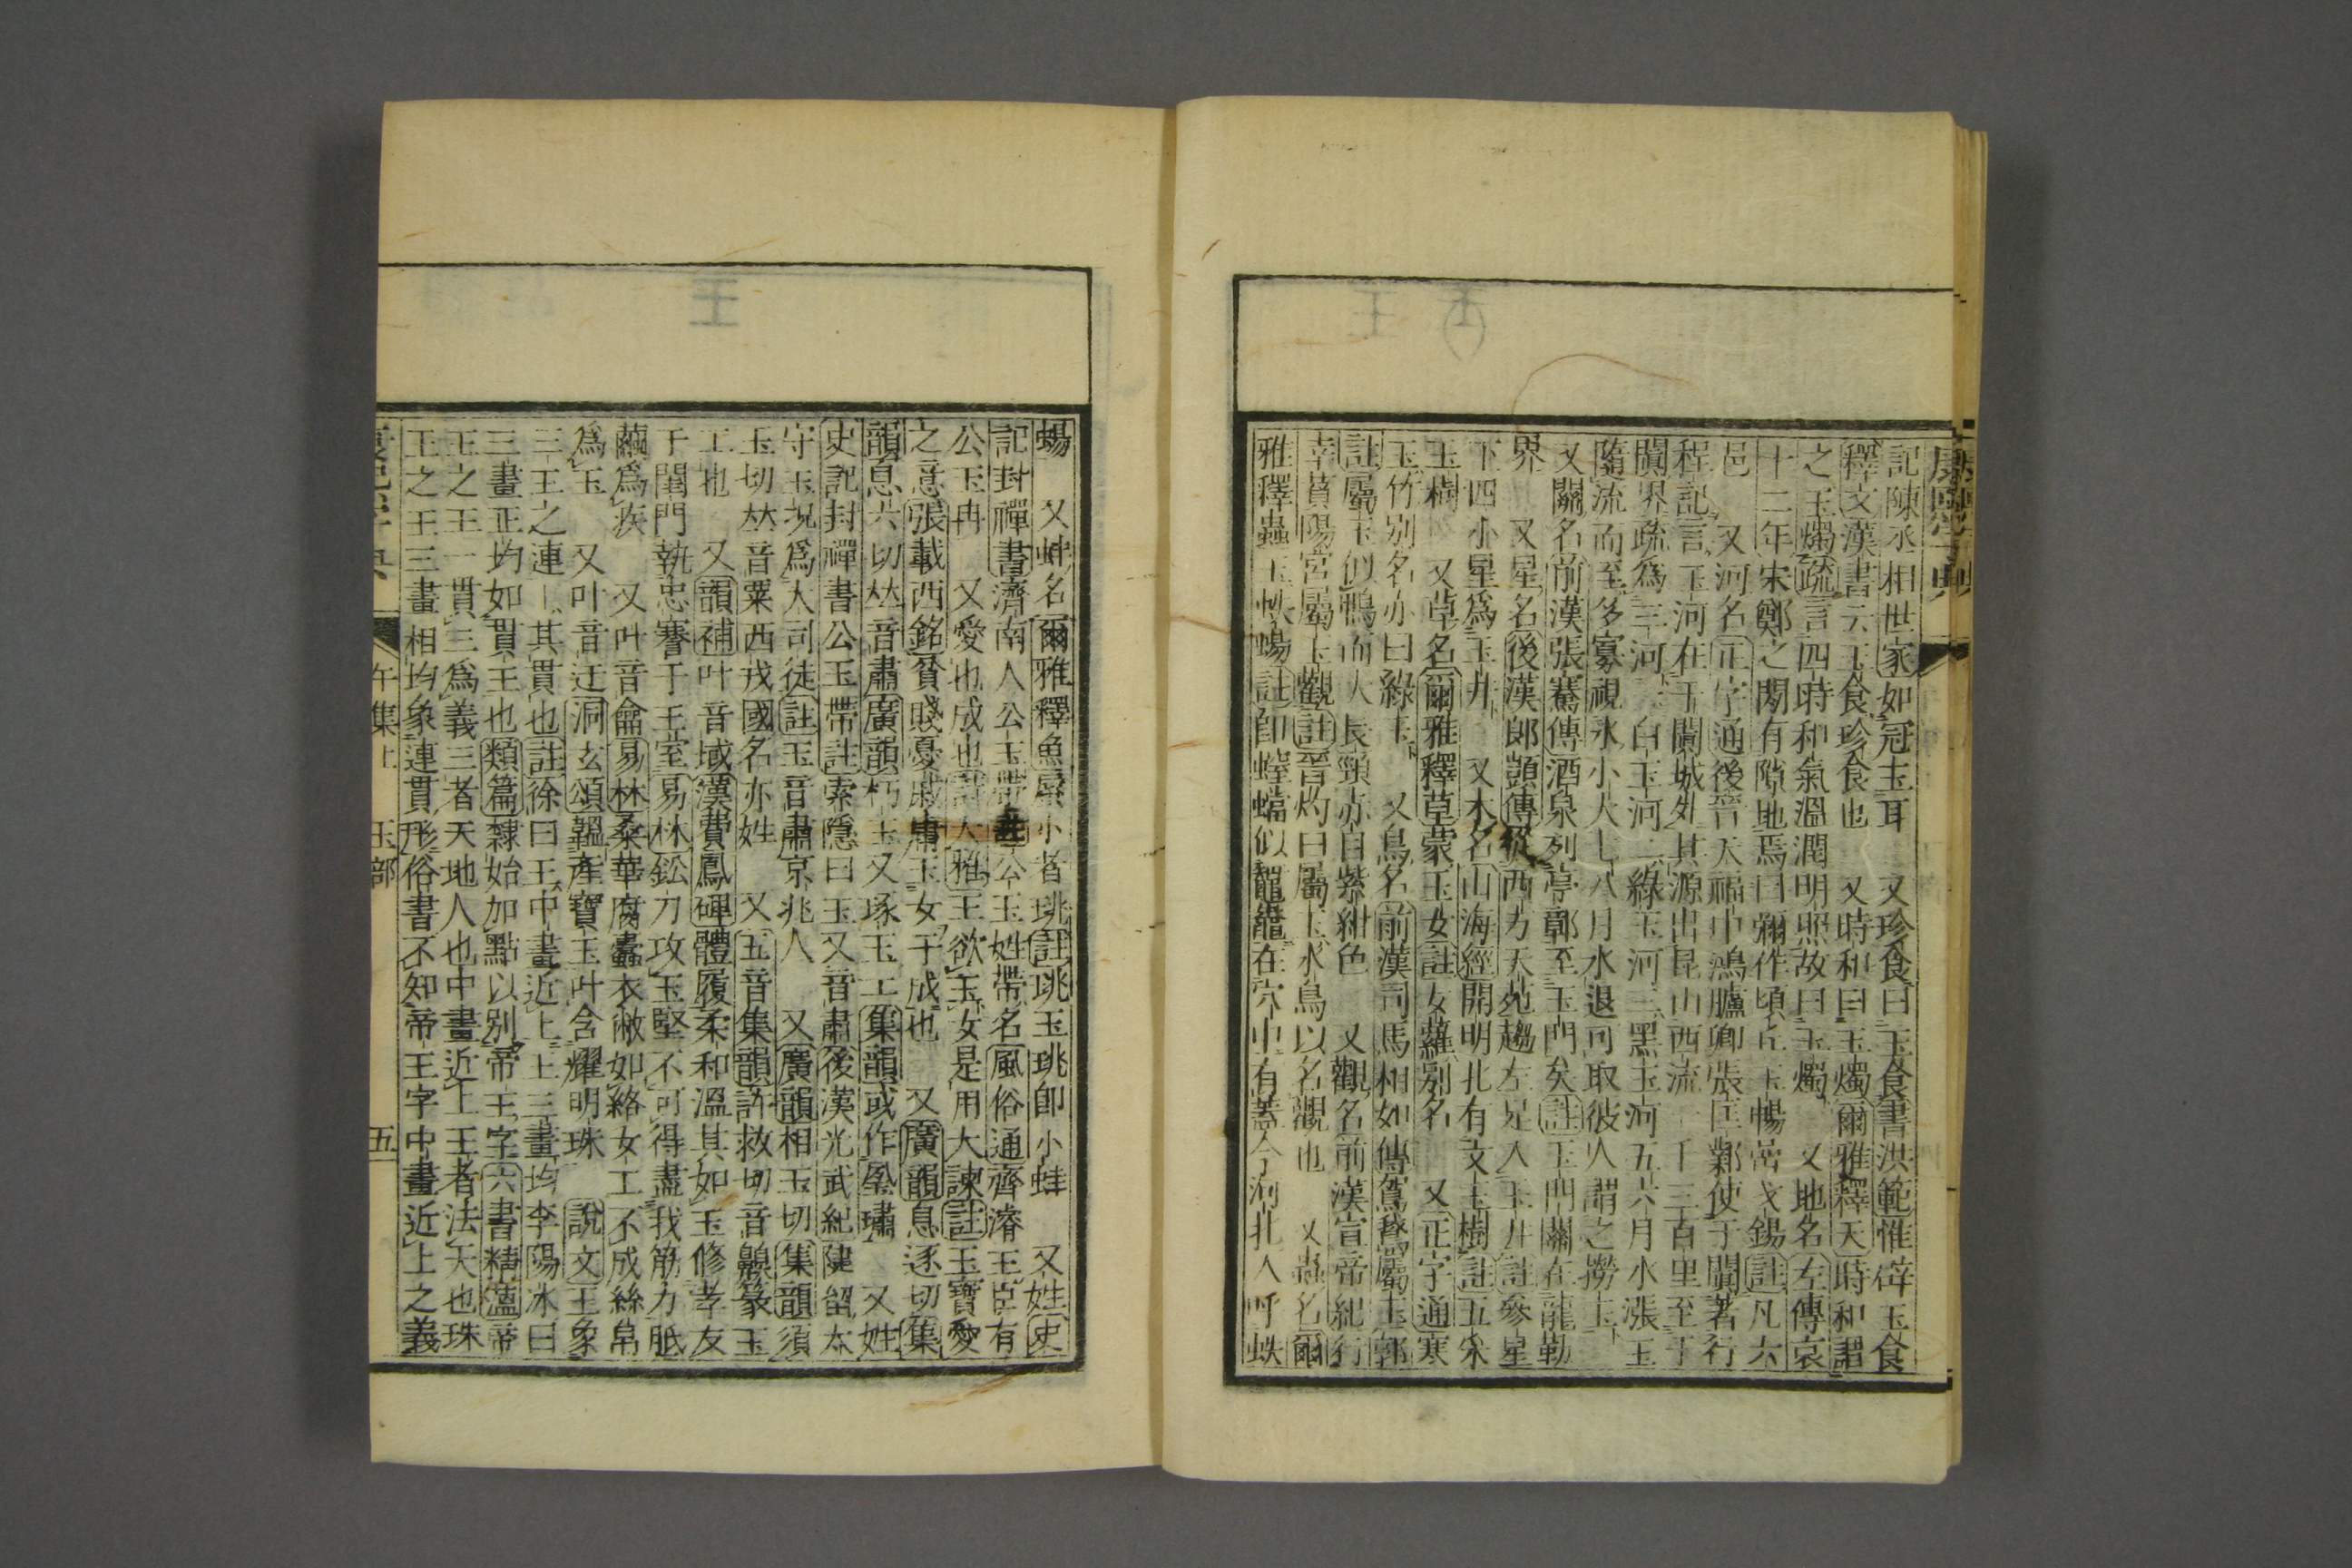 康熙字典
記陳丞相世家如冠玉耳 又珍食曰玉食書洪範惟辟玉食
釋文漢書云玉食珍食也 又時和曰玉燭爾雅釋天時和謂
之玉燭疏言四時和氣溫潤明照故曰玉燭 又地名左傳哀
十二年宋鄭之閒有隙地焉曰彌作頃丘玉暢嵒戈錫註凡六
邑 又河名正字通後晉天福中鴻臚卿張匡鄴使于闐著行
程記言玉河在于闐城外其源出昆山西流一千三百里至于
闐界疏為三河一白玉河二綠玉河三黑玉河五六月水漲玉
隨流而至多寡視水小大七八月水退可取彼人謂之撈玉
又關名前漢張騫傳酒泉列亭鄣至玉門矣註玉門關在龍勒
界 又星名後漢郞顗傳從西方天苑趨左足入玉井註參星
下四小星為玉井 又木名山海經開明北有文玉樹註五采
玉樹 又草名爾雅釋草蒙玉女註女蘿別名 又正字通寒
玉竹別名亦曰綠玉 又鳥名前漢司馬相如傳駕鵞屬玉郭
註屬玉似鴨而大長頸赤目紫紺色 又觀名前漢宣帝紀行
幸萯陽宮屬玉觀註晉灼曰屬玉水鳥以名觀也 又蟲名爾
雅釋蟲王蛈蝪註卽螲蟷似鼅鼄在穴中有蓋今河北人呼蛈
蝪 又蚌名爾雅釋魚蜃小者珧註珧玉珧卽小蚌 又姓史
記封禪書濟南人公玉帶註公玉姓帶名風俗通齊濬王臣有
公玉冉 又愛也成也詩大雅王欲玉女是用大諫註玉寶愛
之意張載西銘貧賤憂戚庸玉女于成也 又廣韻息逐切集
韻息六切𠀤音肅廣韻朽玉又琢玉工集韻或作璽璛 又姓
史記封禪書公玉帶註索隱曰玉又音肅後漢光武紀陳留太
守玉況為大司徒註玉音肅京兆人 又廣韻相玉切集韻須
玉切𠀤音粟西戎國名亦姓 又五音集韻許救切音齅篆玉
工也 又韻補叶音域漢費鳳碑體履柔和溫其如玉修孝友
于閨門執忠謇于王室易林鈆刀攻玉堅不可得盡我筋力胝
繭為疾 又叶音龠易林桑華腐蠹衣敝如絡女工不成絲帛
為玉 又叶音迂洞玄頌韞產寶玉叶含耀明珠 說文玉象
三王之連丨其貫也註徐曰王中畫近上玉三畫均李陽冰曰
三畫正均如貫玉也類篇隸始加點以別帝王字六書精薀帝
王之王一貫三為義三者天地人也中畫近上王者法天也珠
玉之玉三畫相均象連貫形俗書不知帝王字中畫近上之義
康熙字典 午集上 玉部 五